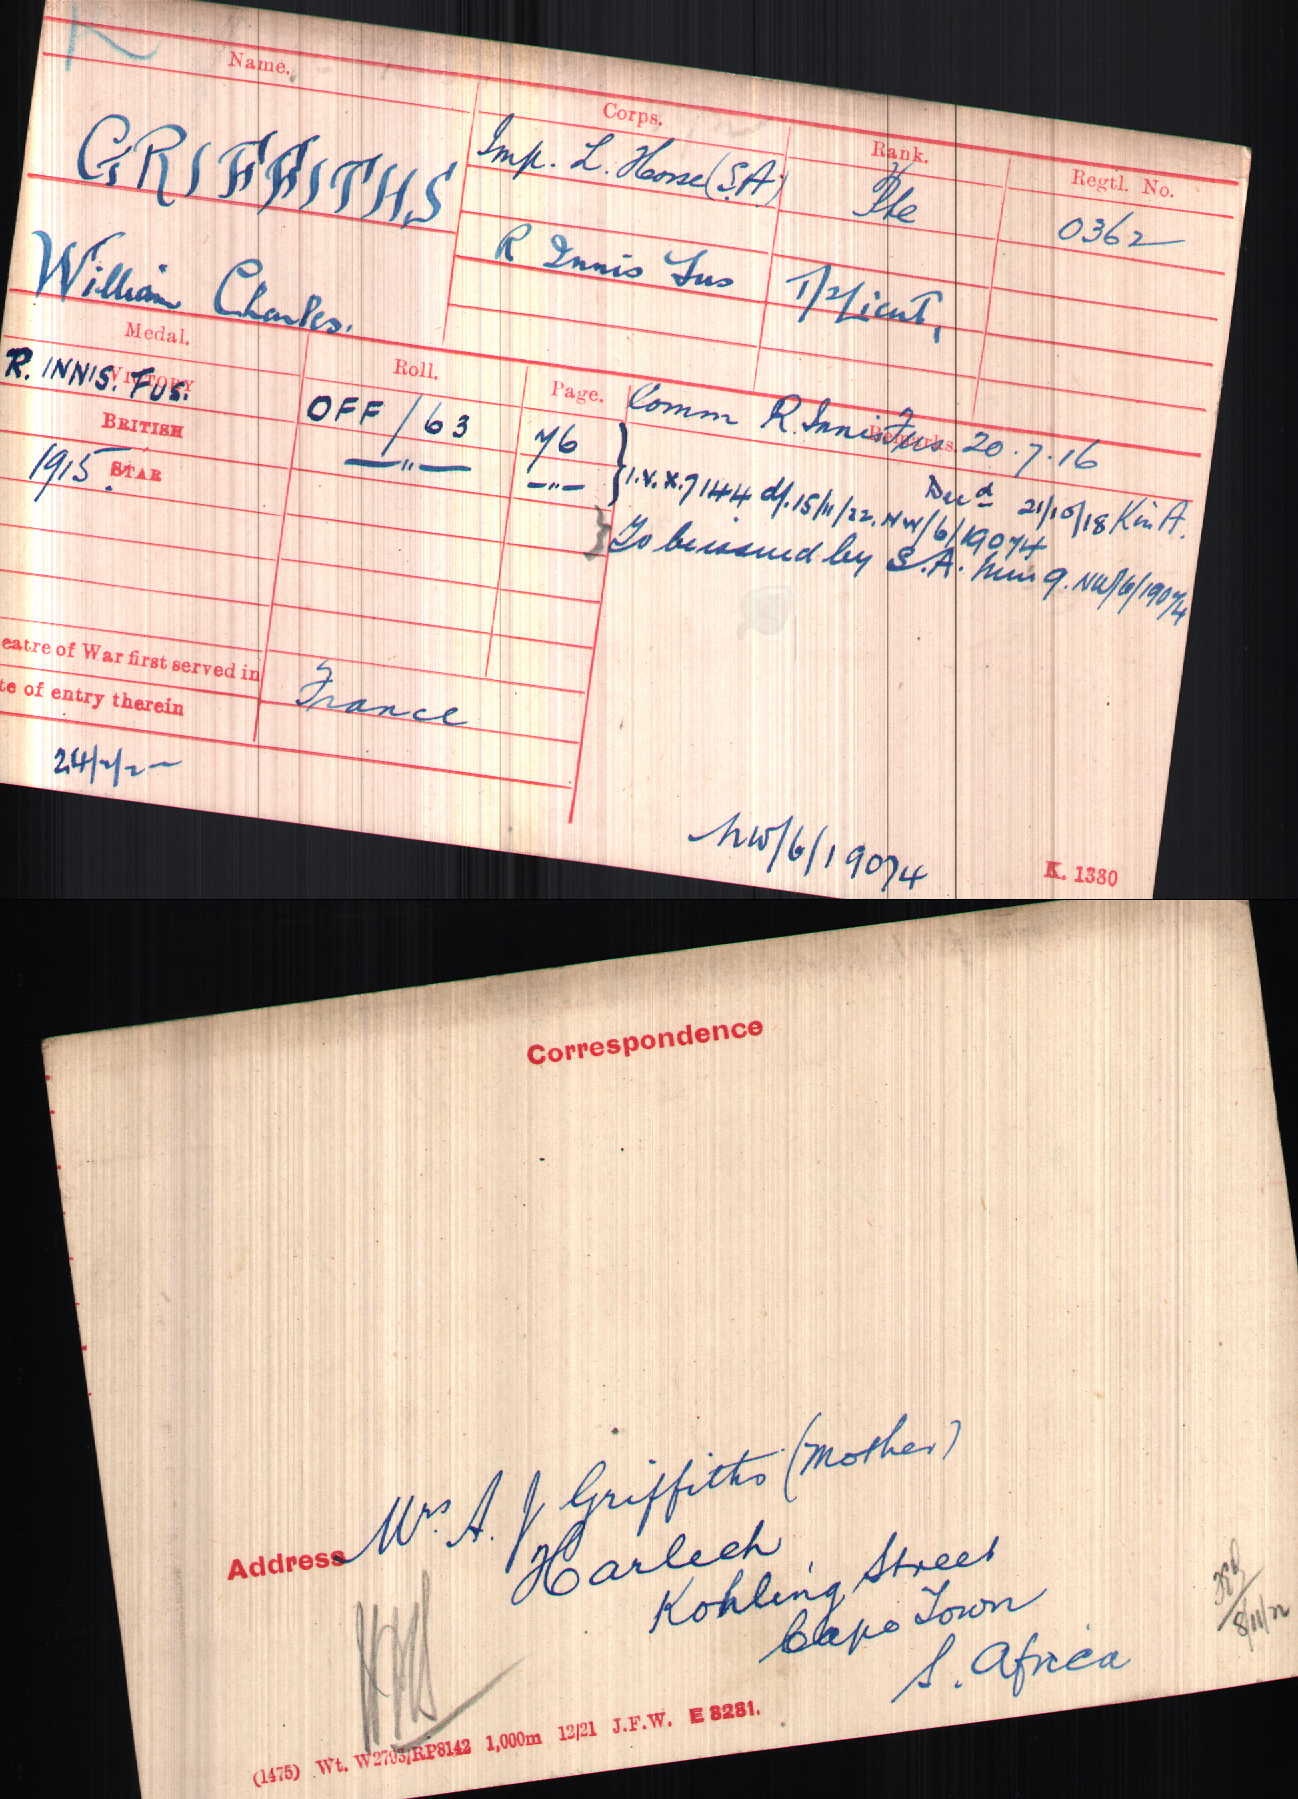 Name.
Corps.
Rank.
Regtl. No.
GRIFFITHS
William Charles.
Imp. L. Horse (S.A)
Pte
0362
R Innis Fus
T/2/Lieut,
Medal.
Roll.
Page.
Remarks.
VICTORY
R. INNIS. FUS.
OFF/63
76
Comm R. Innis Fus 20.7.16
BRITISH
—"—
—"—
I.V.X. 7144 d/. 15/11/22. NW/6/19074
Decd 21/10/18 K in A.
1915. STAR
To be issued by S.A. NW/6/19074
eatre of War first served in
France
te of entry therein
NW/6/19074
K. 1380
Correspondence
Address
Mrs. A. J Griffiths (Mother)
Harlech
Kohling Street
Cape Town
S. Africa
8/11/22
(1475) Wt. W2703/RP8142 1,000m 12/21 J.F.W. E 8281.